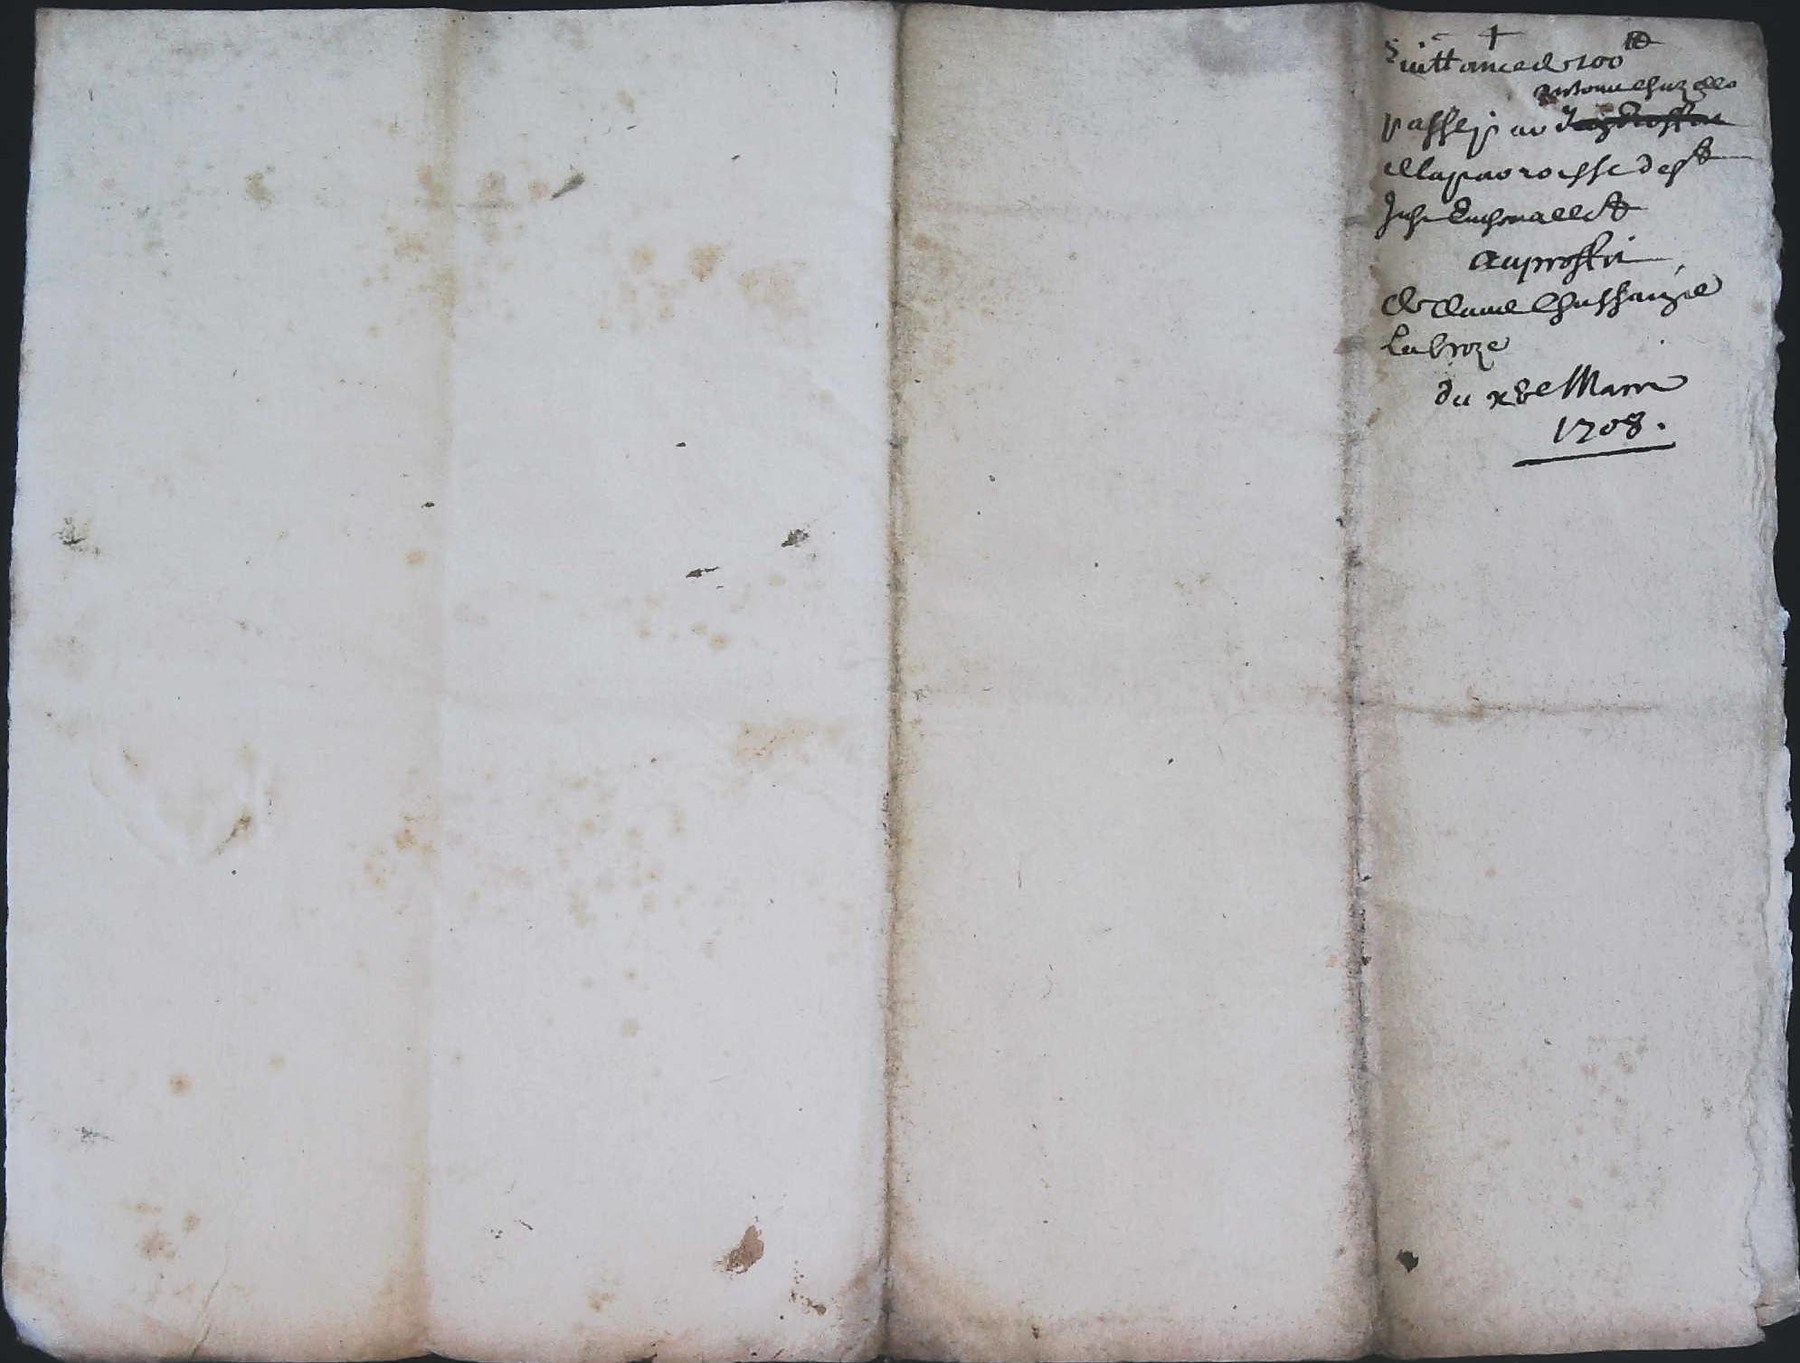 +
quittance de 100 lt
antoine chazelle
passe par
de la parroisse de st
au proffit
de claude chassaigne
labroze
du xve Mars
1708.